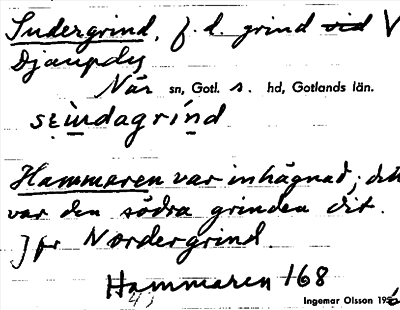 Sudergrind, f. d. grind vid V
Djaupdy
När sn, Gotl. s. hd, Gotlands län.
Hammaren var inhägnad; det
var den södra grinden dit.
Jfr Nordergrind.
Hammaren 168
Ingemar Olsson 195